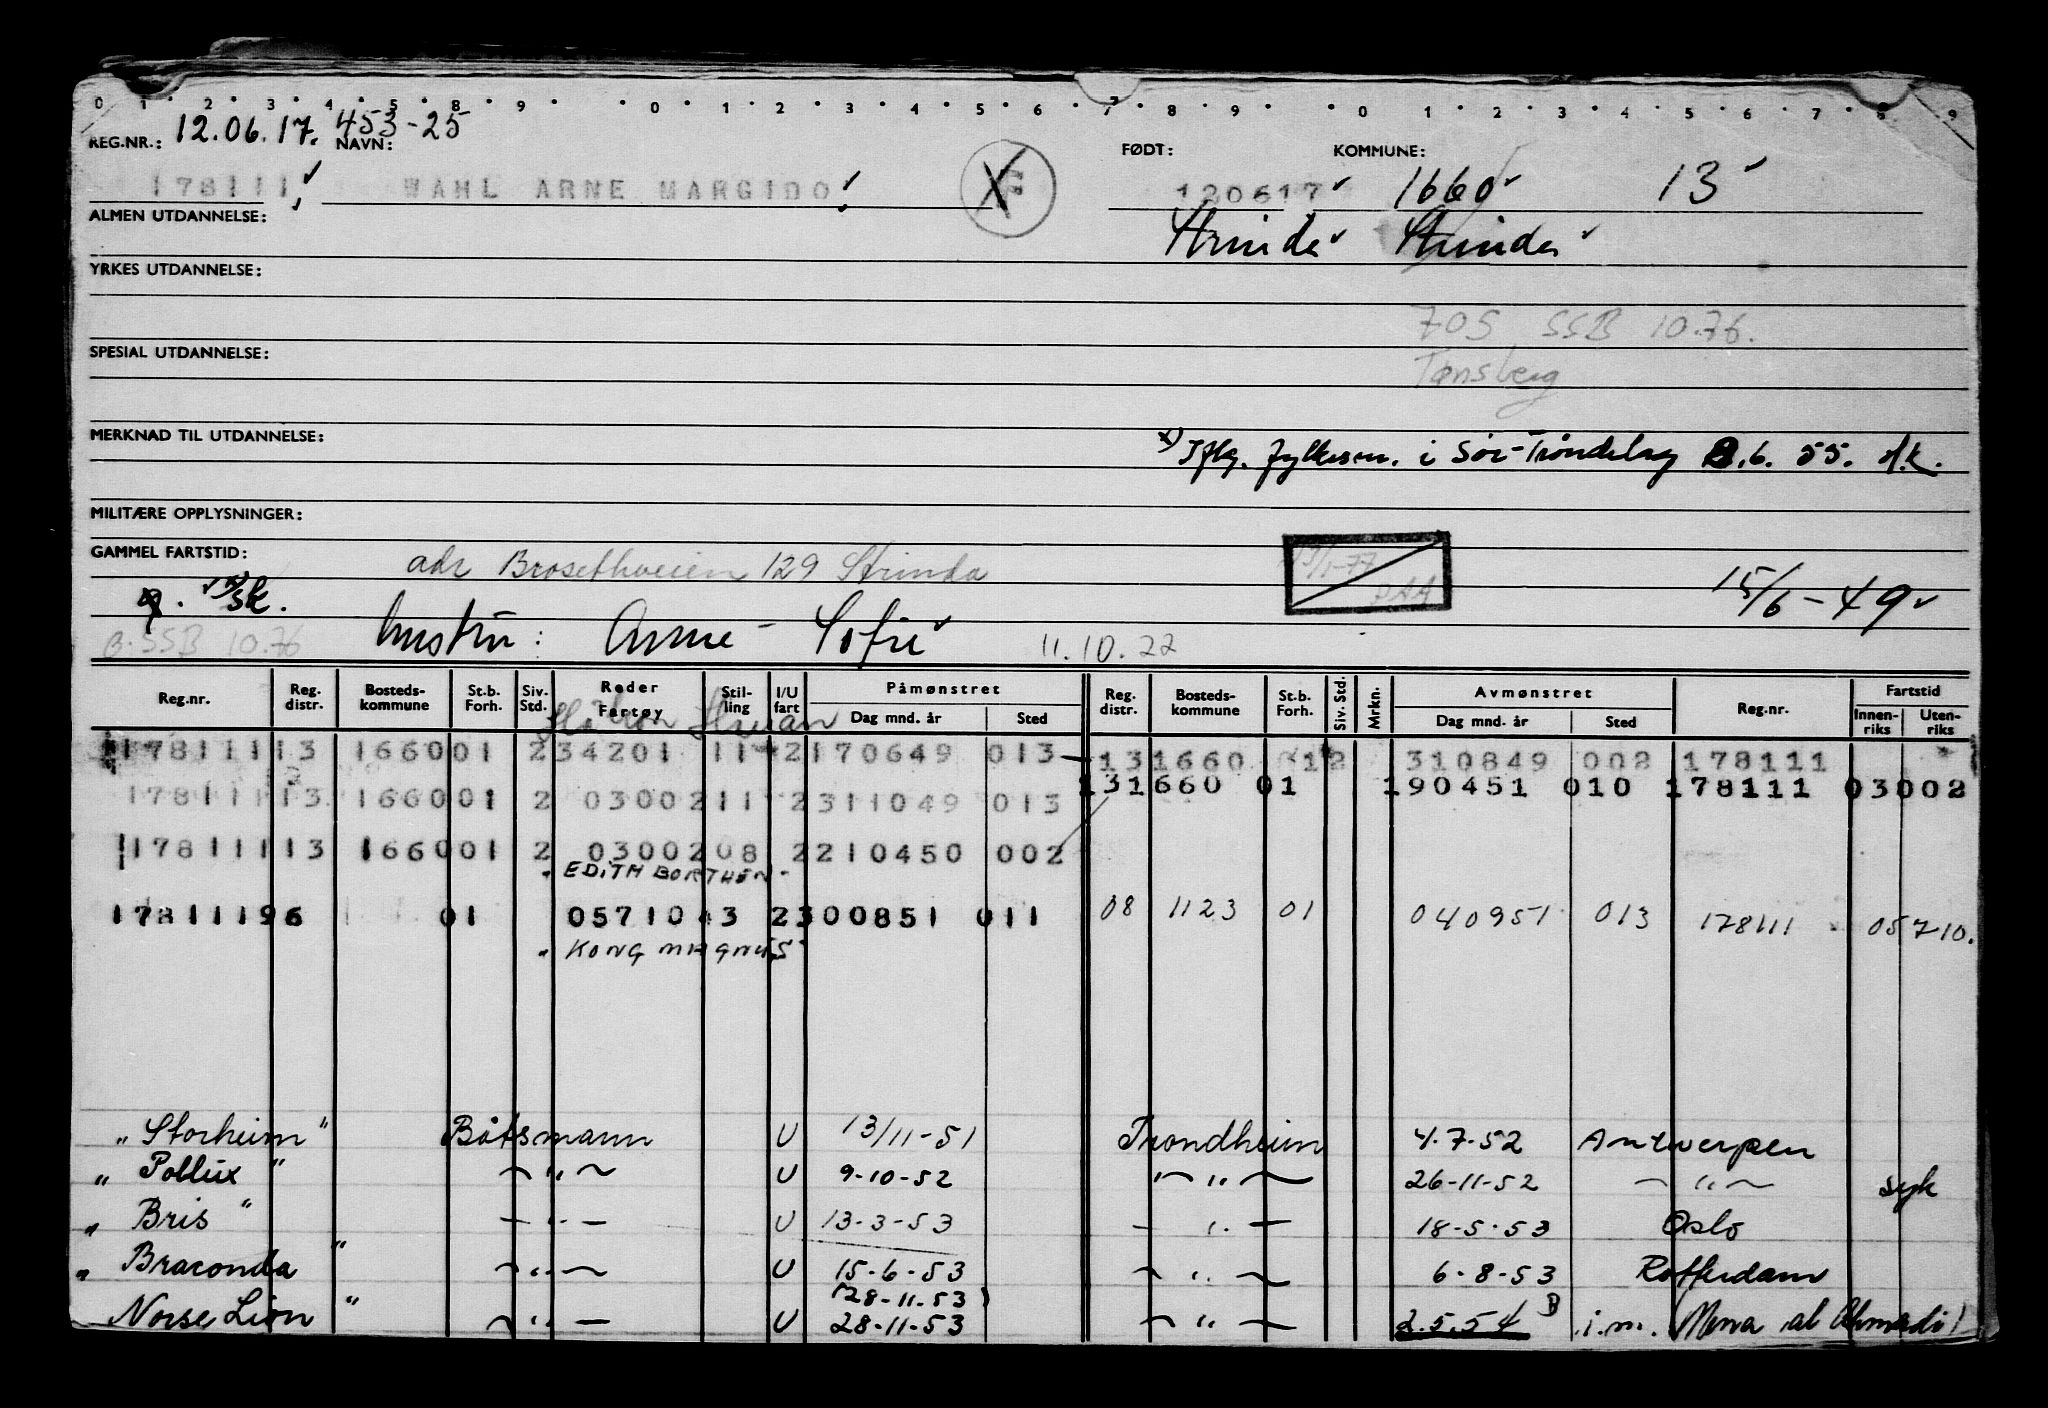 0 1 2 3 4 5 8 9 0 1 2 3 4 5 6 7 8 9 0 1 2 3 4 5 6 7 8 9
REG.NR.: 12.06.17. 453-25 NAVN: FØDT: KOMMUNE:
178111 WAHL ARNE MARGIDO 120617 1660 13
ALMEN UTDANNELSE: Strinda Strinda
YRKES UTDANNELSE:
705 SSB 10.76.
SPESIAL UTDANNELSE: Tønsberg
MERKNAD TIL UTDANNELSE: x) Iflg. fylkesm. i Sør-Trøndelag 2.6.55. d.k.
MILITÆRE OPPLYSNINGER:
GAMMEL FARTSTID: adr Brosethveien 129 Strinda 13/1-77
g. sk. 15/6-49
B.SSB 10.76 hustru: Anne-Sofie 11.10.22
Reg.nr. Reg. distr. Bosteds-kommune St.b. Forh. Siv. Std. Reder Fartøy Stil-ling I/U fart Påmønstret Dag mnd. år Sted Reg. distr. Bosteds-kommune St.b. Forh. Siv. Std. Mrkn. Avmønstret Dag mnd. år Sted Reg.nr. Fartstid Innen-riks Uten-riks
178111 13 1660 01 2 34201 11 2 170649 013 13 1660 01 2 310849 002 178111
131660 01 190451 010 178111 03002
178111 13 1660 01 2 03002 11 2 311049 013
178111 13 1660 01 2 03002 08 2 210450 002
"EDITH BORTHEN"
178111 96 01 05710 3 2 300851 011 08 1123 01 040951 013 178111 05710.
"KONG MAGNUS"
"Storheim" Båtsmann U 13/11-51 Trondheim 4.7.52 Antwerpen
"Pollux" - " - U 9-10-52 - " - 26-11-52 - " - syk
"Bris" - " - U 13-3-53 - " - 18-5-53 Oslo
"Braconda" - " - U 15-6-53 - " - 6-8-53 Rotterdam
(28-11-53)
Norse Lion" - " - U 28-11-53 - " - 2.5.54 B i.m. (Mena al Ahmadi)